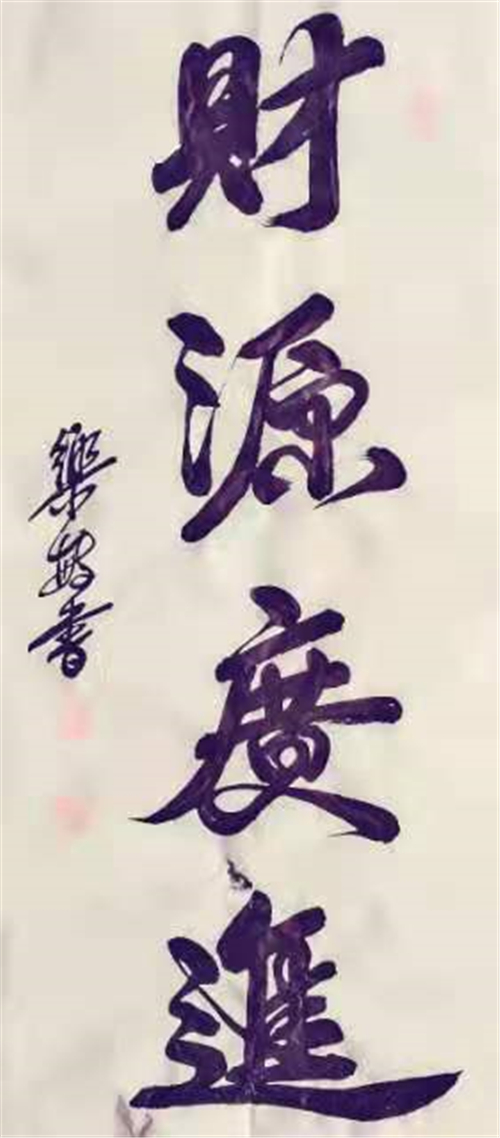 財源廣進
樂敏書